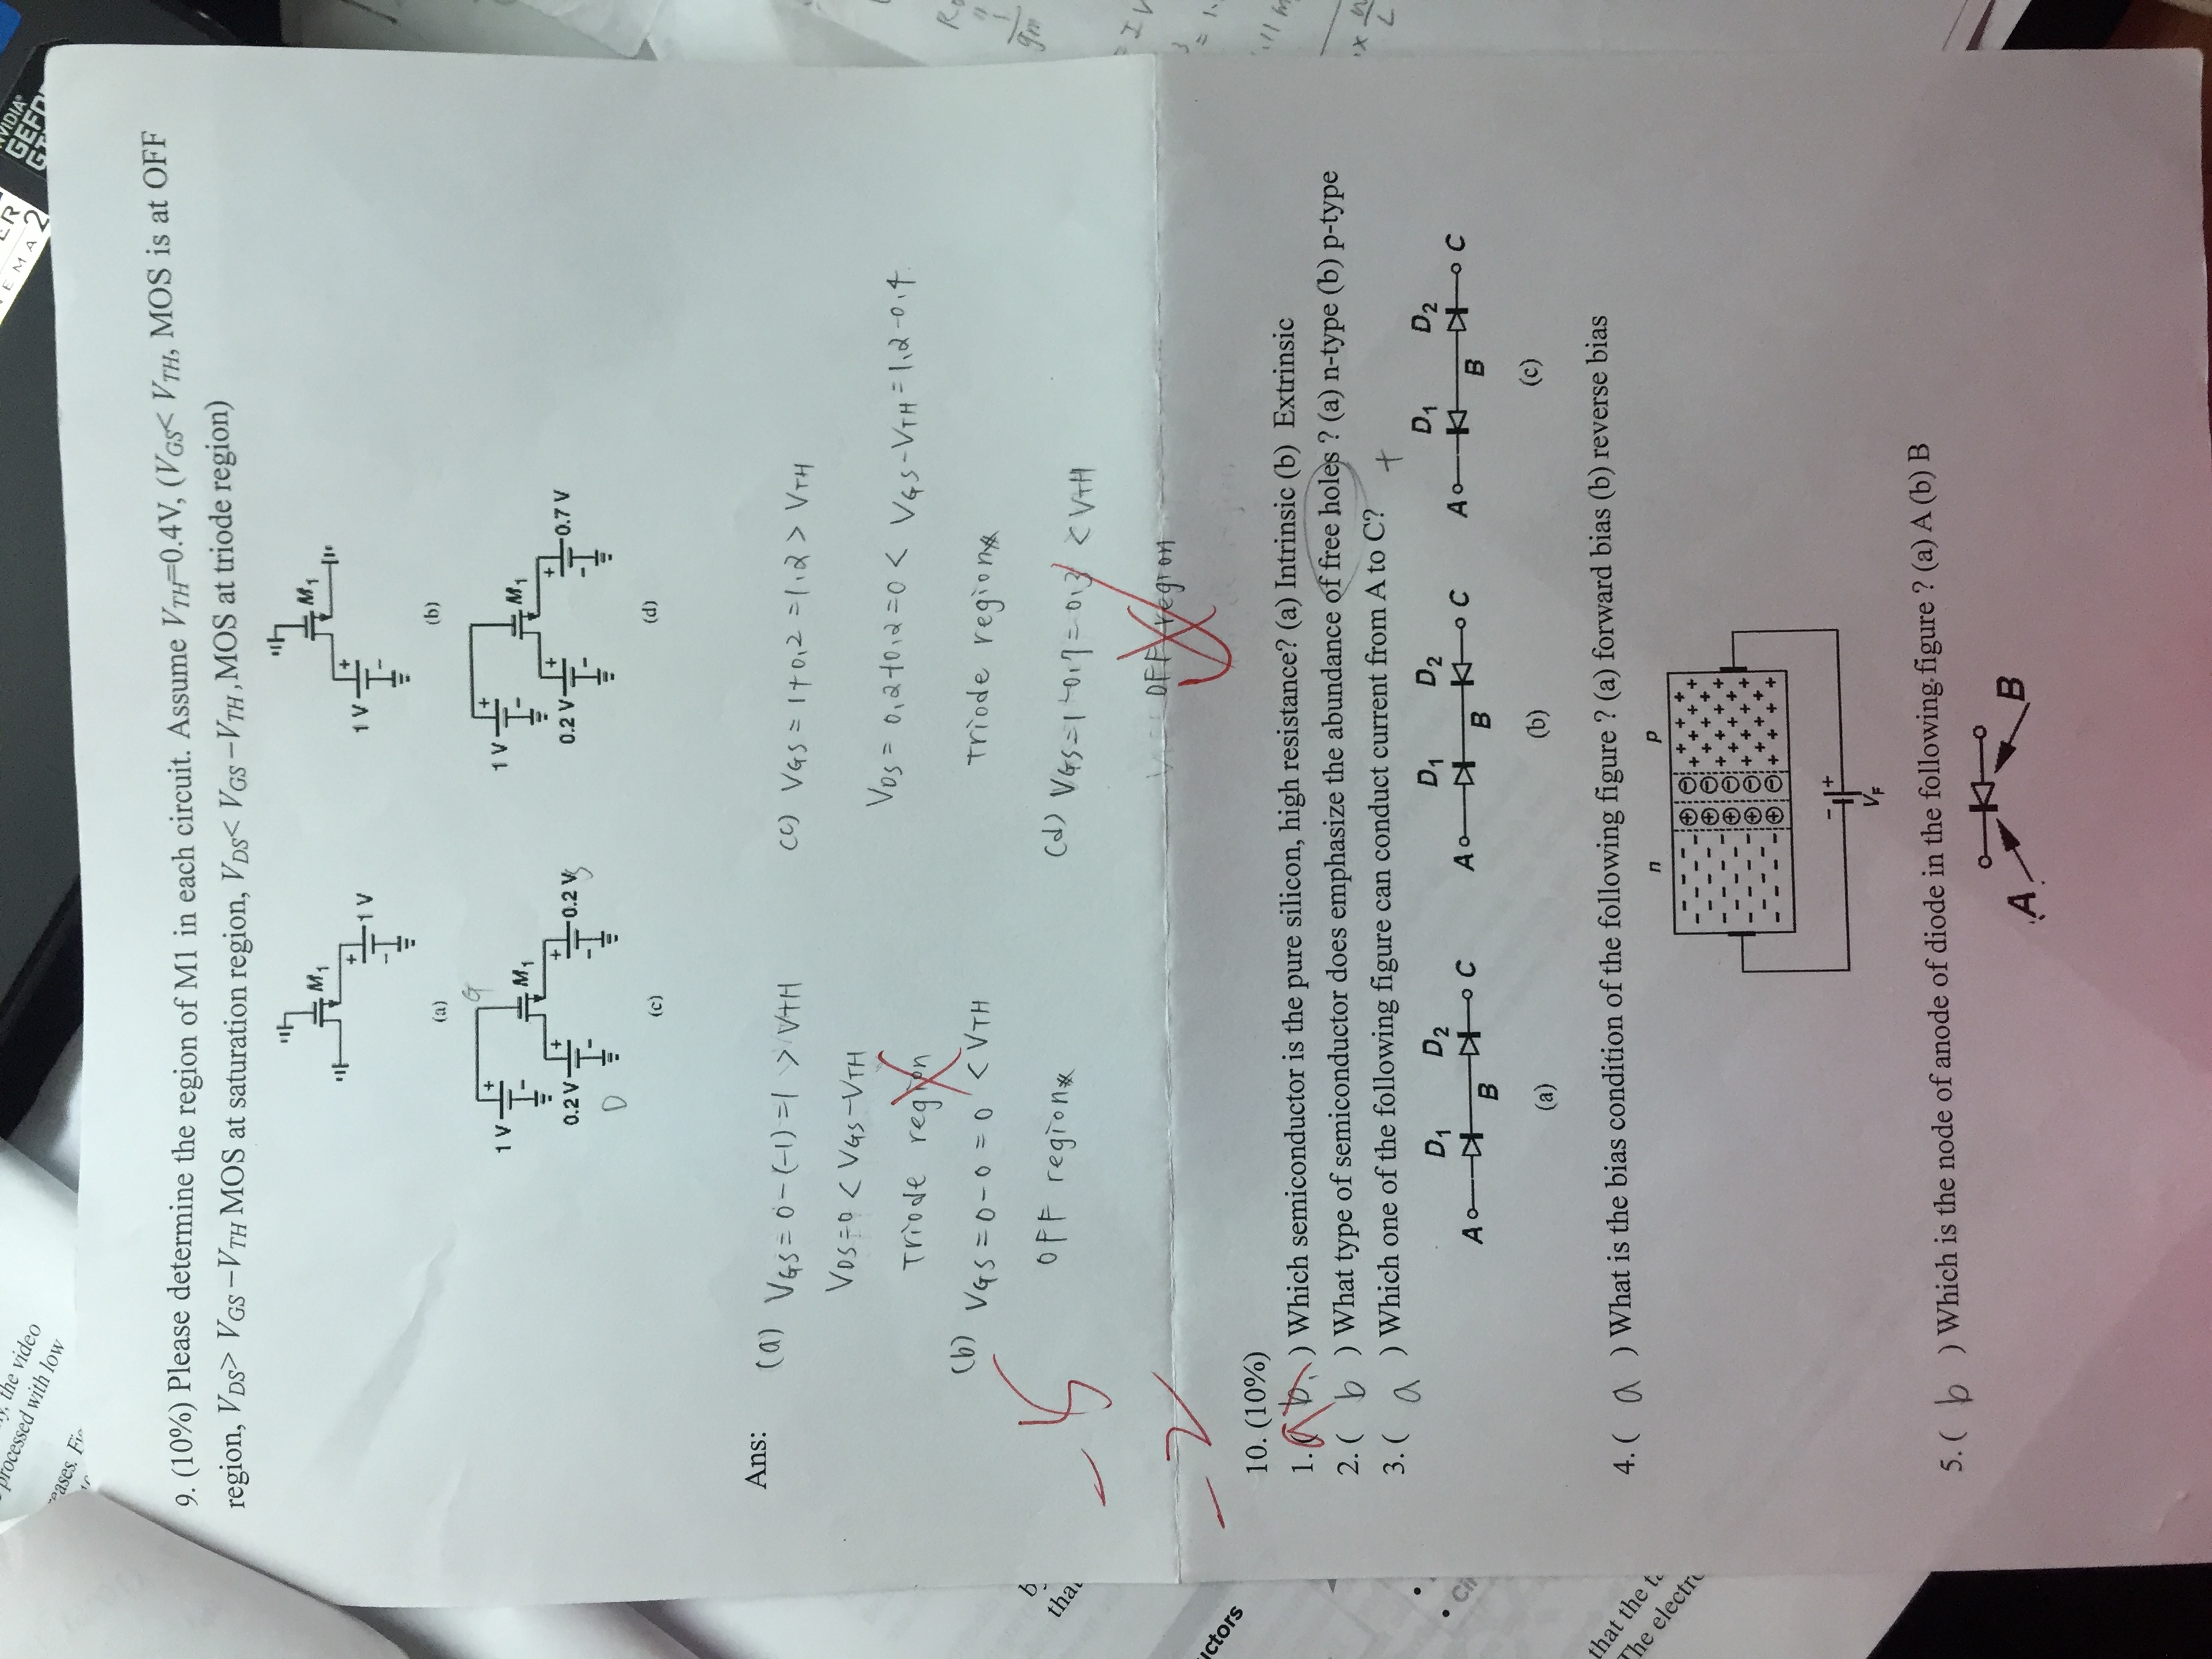 , the video
processed with low
eases. Fi
NVIDIA
GEFO
9. (10%) Please determine the region of M1 in each circuit. Assume VTH=0.4V, (VGS< VTH, MOS is at OFF
region, VDS> VGS –VTH MOS at saturation region, VDS< VGS –VTH ,MOS at triode region)
M1
1 V
(a)
M1
1 V
(b)
G
1 V
M1
0.2 V
0.2 V
S
D
(c)
1 V
M1
0.2 V
0.7 V
(d)
Ans:
(a) VGS = 0-(-1) = 1 > VTH
VDS=0 < VGS-VTH
Triode region
(b) VGS = 0-0 = 0 < VTH
OFF region
(c) VGS = 1+0.2 = 1.2 > VTH
VDS = 0.2+0.2=0 < VGS-VTH = 1.2-0.4
Triode region
(d) VGS=1-0.7=0.3 < VTH
OFF region
-5
-2
10. (10%)
1. (a b ) Which semiconductor is the pure silicon, high resistance? (a) Intrinsic (b) Extrinsic
2. ( b ) What type of semiconductor does emphasize the abundance of free holes ? (a) n-type (b) p-type
3. ( a ) Which one of the following figure can conduct current from A to C?
+
D1 D2
A B C
(a)
D1 D2
A B C
(b)
D1 D2
A B C
(c)
4. ( a ) What is the bias condition of the following figure ? (a) forward bias (b) reverse bias
n p
- +
VF
5. ( b ) Which is the node of anode of diode in the following figure ? (a) A (b) B
A B
uctors
that the
The electr
gm